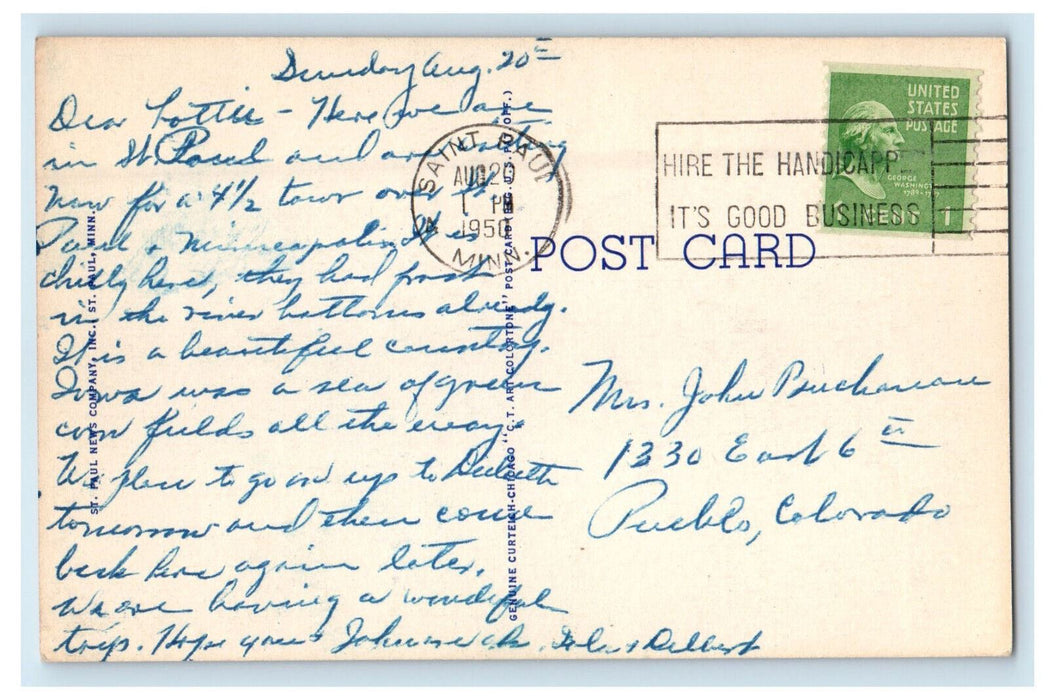 Sunday Aug. 20th
Dear Lottie - Here we are
in St Paul and are waiting
now for a 4 1/2 tour over St.
Paul & Minneapolis. It is
chilly here, they had frost
in the river bottoms already.
It is a beautiful country.
Iowa was a sea of green
corn fields all the way.
We plan to go on up to Duluth
tomorrow and then come
back here again later.
We are having a wonderful
trip. Hope you & John
& Delbert
ST. PAUL NEWS COMPANY, INC., ST. PAUL, MINN.
GENUINE CURTEICH-CHICAGO "C.T. ART-COLORTONE" POST CARD (REG. U.S. PAT. OFF.)
SAINT PAUL
AUG 20
1 PM
1950
MINN.
4
HIRE THE HANDICAPPED
IT'S GOOD BUSINESS
UNITED
STATES
POSTAGE
GEORGE
WASHINGTON
1 CENTS 1
POST CARD
Mrs. John Buchanan
1230 East 6th
Pueblo, Colorado